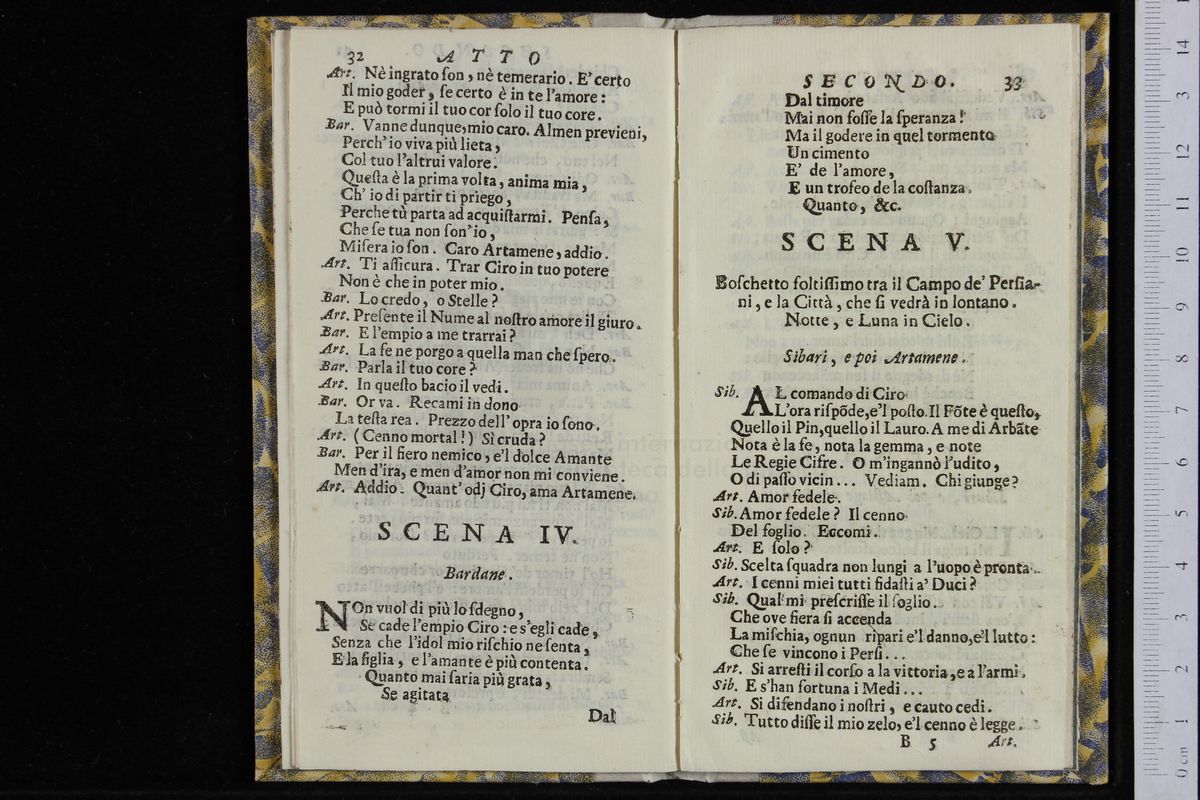 32 ATTO
Art. Nè ingrato ſon, nè temerario. E' certo
Il mio goder, ſe certo è in te l'amore:
E può tormi il tuo cor ſolo il tuo core.
Bar. Vanne dunque, mio caro. Almen previeni,
Perch' io viva più lieta,
Col tuo l'altrui valore.
Queſta è la prima volta, anima mia,
Ch' io di partir ti priego,
Perche tù parta ad acquiſtarmi. Penſa,
Che ſe tua non ſon' io,
Miſera io ſon. Caro Artamene, addio.
Art. Ti aſſicura. Trar Ciro in tuo potere
Non è che in poter mio.
Bar. Lo credo, o Stelle?
Art. Preſente il Nume al noſtro amore il giuro.
Bar. E l'empio a me trarrai?
Art. La fe ne porgo a quella man che ſpero.
Bar. Parla il tuo core?
Art. In queſto bacio il vedi.
Bar. Or va. Recami in dono
La teſta rea. Prezzo dell' opra io ſono.
Art. (Cenno mortal!) Sì cruda?
Bar. Per il fiero nemico, e'l dolce Amante
Men d'ira, e men d'amor non mi conviene.
Art. Addio. Quant' odj Ciro, ama Artamene.
SCENA IV.
Bardane.
NOn vuol di più lo ſdegno,
Se cade l'empio Ciro: e s'egli cade,
Senza che l'idol mio riſchio ne ſenta,
E la figlia, e l'amante è più contenta.
Quanto mai ſaria più grata,
Se agitata
Dal
SECONDO. 33
Dal timore
Mai non foſſe la ſperanza!
Ma il godere in quel tormento
Un cimento
E' de l'amore,
E un trofeo de la coſtanza.
Quanto, &c.
SCENA V.
Boſchetto foltiſſimo tra il Campo de' Perſia-
ni, e la Città, che ſi vedrà in lontano.
Notte, e Luna in Cielo.
Sibari, e poi Artamene.
Sib. AL comando di Ciro
L'ora riſpõde, e'l poſto. Il Fõte è queſto,
Quello il Pin, quello il Lauro. A me di Arbãte
Nota è la fe, nota la gemma, e note
Le Regie Cifre. O m'ingannò l'udito,
O di paſſo vicin... Vediam. Chi giunge?
Art. Amor fedele.
Sib. Amor fedele? Il cenno
Del foglio. Eccomi.
Art. E ſolo?
Sib. Scelta ſquadra non lungi a l'uopo è pronta.
Art. I cenni miei tutti fidaſti a' Duci?
Sib. Qual mi preſcriſſe il foglio.
Che ove fiera ſi accenda
La miſchia, ognun ripari e'l danno, e'l lutto:
Che ſe vincono i Perſi...
Art. Si arreſti il corſo a la vittoria, e a l'armi.
Sib. E s'han fortuna i Medi...
Art. Si difendano i noſtri, e cauto cedi.
Sib. Tutto diſſe il mio zelo, e'l cenno è legge.
B 5 Art.